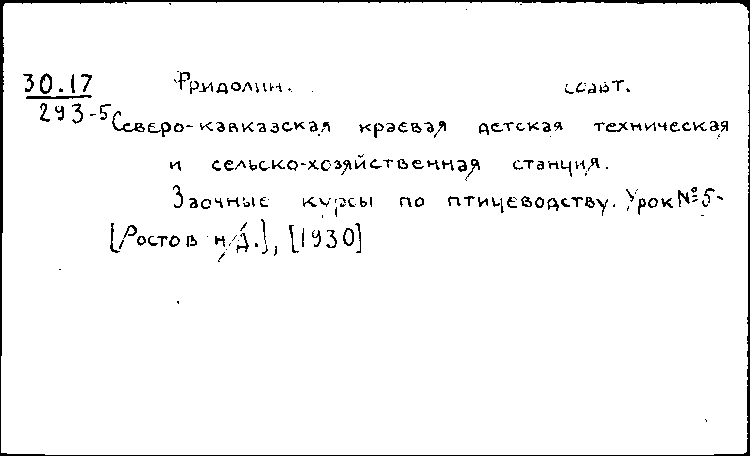 30.17 Фридолин. соавт.
293-5 Северо-кавказская краевая детская техническая
и сельско-хозяйственная станция.
Заочные курсы по птицеводству. Урок №5-
[Ростов н/Д.], [1930]